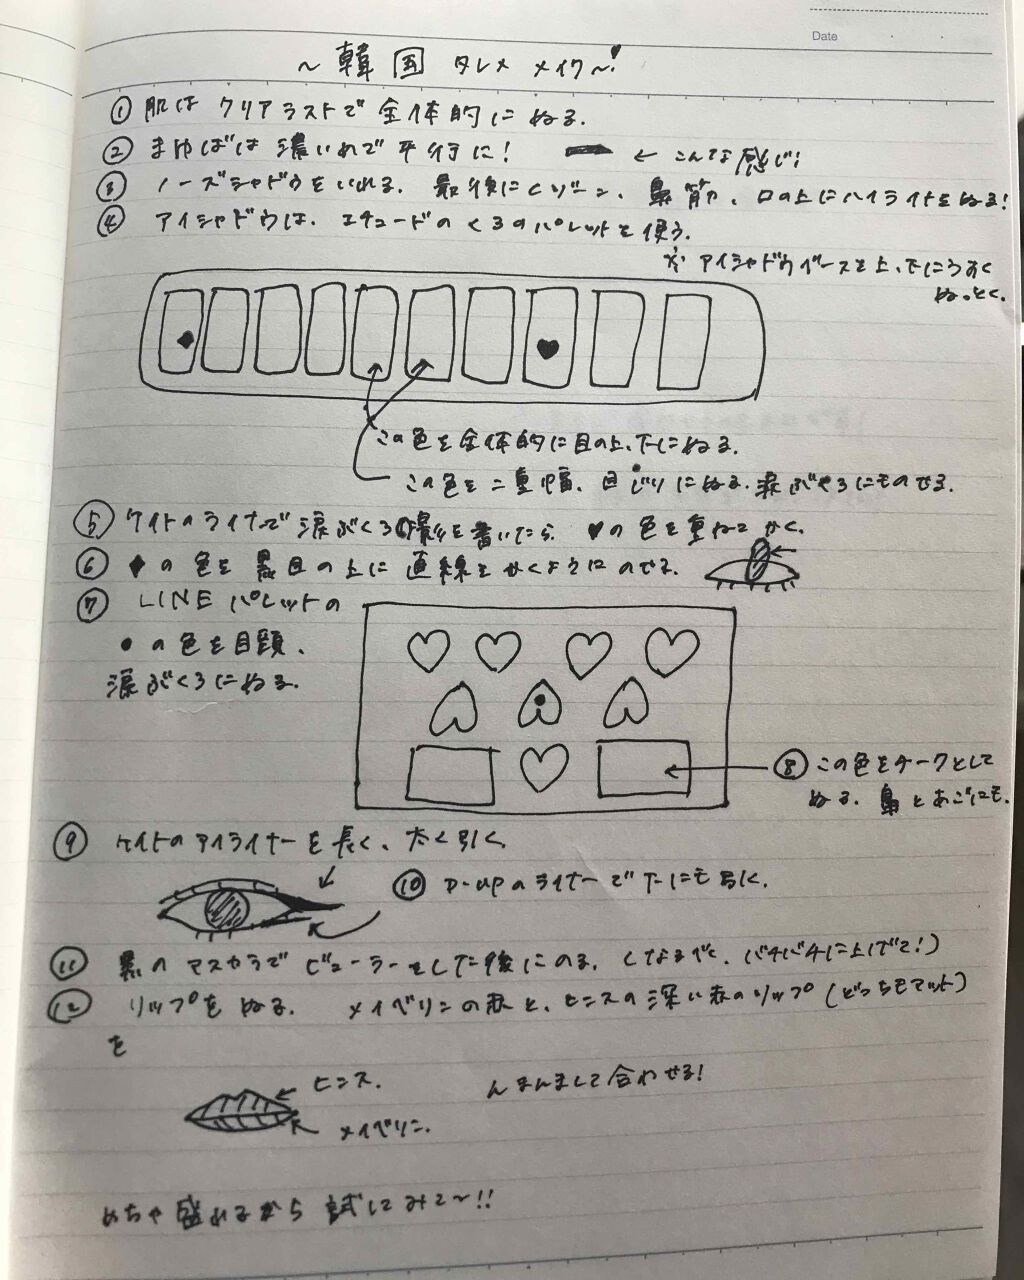 Date
～韓国 タレメ メイク～!
① 肌は クリアラストで 全体的に ぬる.
② まゆげは 濃いめで 平行に! ← こんな感じ!
③ ノーズシャドウをいれる. 最後にCゾーン、鼻筋、口の上にハイライトをぬる!
④ アイシャドウは、エチュードの くまのパレットを使う.
※ アイシャドウベースを上、下にうすく
ぬっとく.
この色を全体的に目の上、下にぬる.
この色を二重幅、目じりにぬる. 涙ぶくろにものせる.
⑤ ケイトのライナーで 涙ぶくろの影を書いたら ♥の色を重ねてかく.
⑥ ◆の色を黒目の上に直線をかくようにのせる.
⑦ LINEパレットの
●の色を目頭、
涙ぶくろにぬる.
⑧ この色をチークとして
ぬる. 鼻とあごにも.
⑨ ケイトのアイライナーを長く、太く引く.
⑩ D-UPのライナーで下にも引く.
⑪ 黒のマスカラで ビューラーをした後にのる. (なるべく、バチバチに上げて!)
⑫ リップをぬる. メイベリンの赤と、ヒンスの深い赤のリップ(どっちもマット)
を
んまんまして合わせる!
← ヒンス.
メイベリン.
めちゃ盛れるから 試してみて～!!